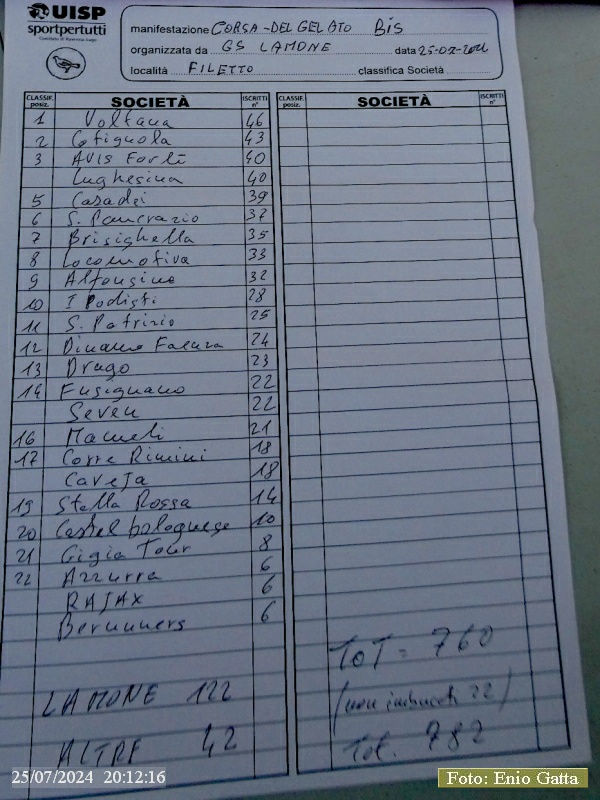 UISP
sportpertutti
manifestazione CORSA-DEL GELATO BIS
organizzata da GS LAMONE data 25-07-2024
località FILETTO classifica Società
CLASSIF. posiz. SOCIETÀ ISCRITTI n° CLASSIF. posiz. SOCIETÀ ISCRITTI n°
1 Voltana 46
2 Cotignola 43
3 AVIS Forlì 40
Lughesina 40
5 Casadei 39
6 S. Pancrazio 37
7 Brisighella 35
8 Locomotiva 33
9 Alfonsine 32
10 I Podisti 28
11 S. Patrizio 25
12 Dinamo Faenza 24
13 Drago 23
14 Fusignano 22
Seven 22
16 Mameli 21
17 Corre Rimini 18
Caveja 18
19 Stella Rossa 14
20 Castel bolognese 10
21 Gigia Tour 8
22 Azzurra 6
RAJAX 6
Berunners 6
LAMONE 122
ALTRE 42
TOT = 760
(non 22)
Tot. 782
25/07/2024 20:12:16
Foto: Enio Gatta